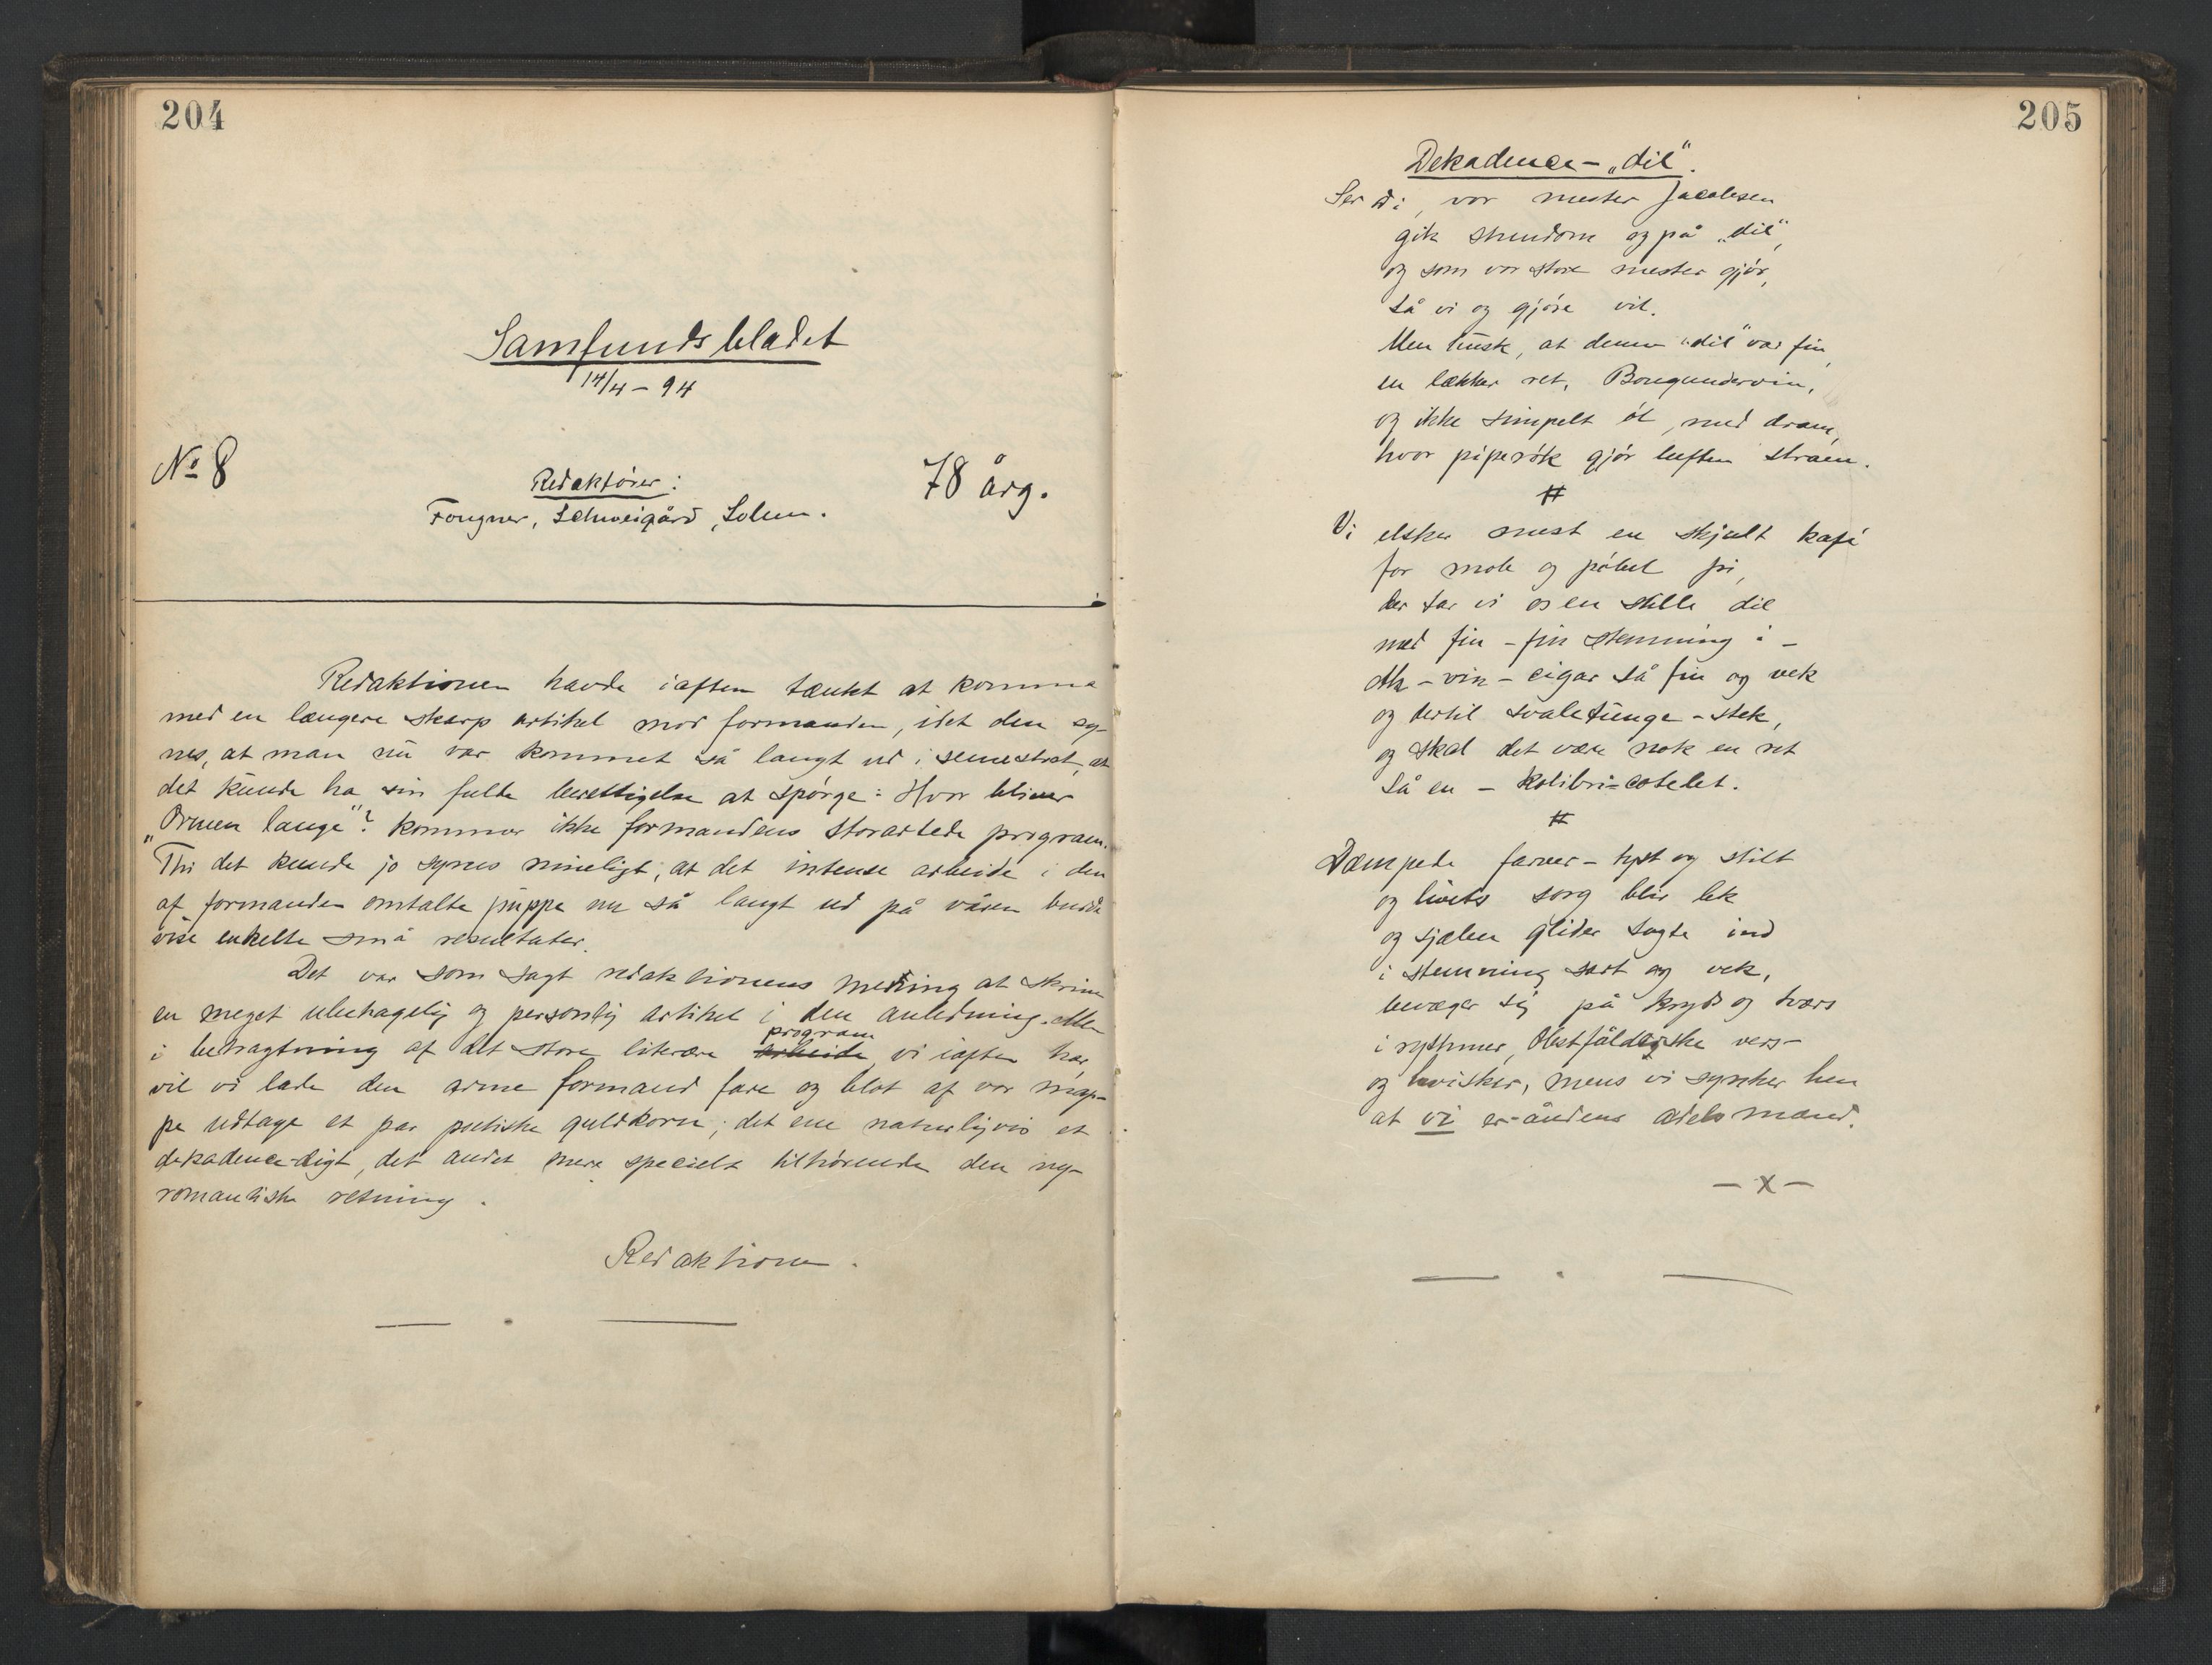 204
Samfundsbladet
14/4 – 94
No 8
Redaktører:
78 årg.
Fougner, Schweigård, Solem.
Redaktionen havde iaften tænkt at komme
med en længere skarp artikel mod formanden, idet den sy-
nes, at man nu var kommet så langt ud i semestret, at
det kunde ha sin fulde berettigelse at spørge: Hvor bliver
„Ormen lange"? kommer ikke formandens storartede program.
Thi det kunde jo synes rimeligt, at det intense arbeide i den
af formanden omtalte juppe nu så langt ud på våren burde
vise enkelte små resultater.
Det var som sagt redaktionens mening at skrive
en meget ubehagelig og personlig artikel i den anledning. Men
i betragtning af det store literære arbeide program vi iaften har,
vil vi lade den arme formand fare og blot af vor map-
pe udtage et par poetiske guldkorn; det ene naturligvis et
dekadence-digt, det andet mere specielt tilhørende den ny-
romantiske retning.
Redaktionen.
205
Dekadence – „dil".
Ser Di, vor mester Jacobsen
gik stundom og på „dil",
og som vor store mester gjør,
så vi og gjøre vil.
Men husk, at denne „dil" var fin,
en lækker ret, Bourgundervin,
og ikke simpelt øl, med dram,
hvor piperøk gjør luften stram.
#
Vi elsker mest en skjult kafé
for mob og pøbel fri,
der tar vi os en stille dil
med fin – fin stemning i –
Ah – vin – cigar så fin og vek
og dertil svaletunge – stek,
og skal det være nok en ret
så en – kolibri-cotelet.
#
Dæmpede farver – tyst og stilt
og livets sorg blir lek
og sjælen glider sagte ind
i stemning sart og vek,
bevæger sig på kryds og tvers
i rythmer, Obstfelderske vers –
og hvisker, mens vi synker hen
at vi er åndens adelsmænd.
– x –